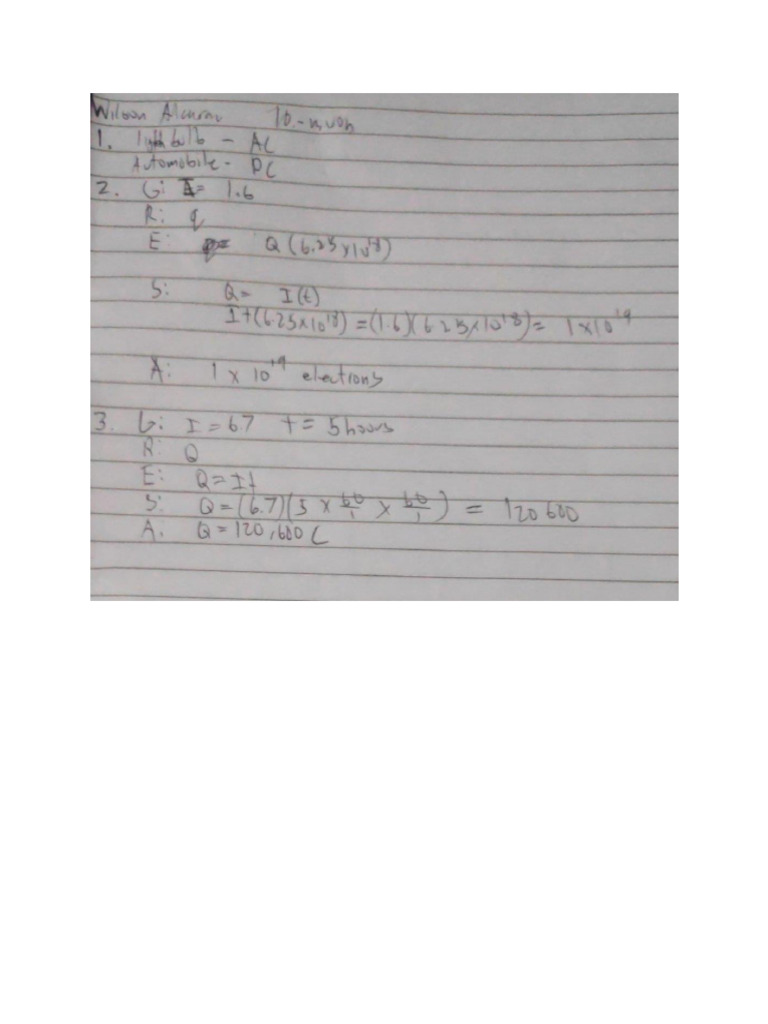 Wilson
1. light bulb - AC
Automobile - DC
2. G: I= 1.6
R: q
E: q= Q (6.25x10¹⁸)
S: Q= I(t)
It(6.25x10¹⁸) = (1.6)(6.25x10¹⁸)= 1x10¹⁹
A: 1 x 10¹⁹ electrons
3. G: I = 6.7 t = 5 hours
R: Q
E: Q=It
S: Q=(6.7)(5 x 60/1 x 60/1) = 120600
A: Q=120,600 C